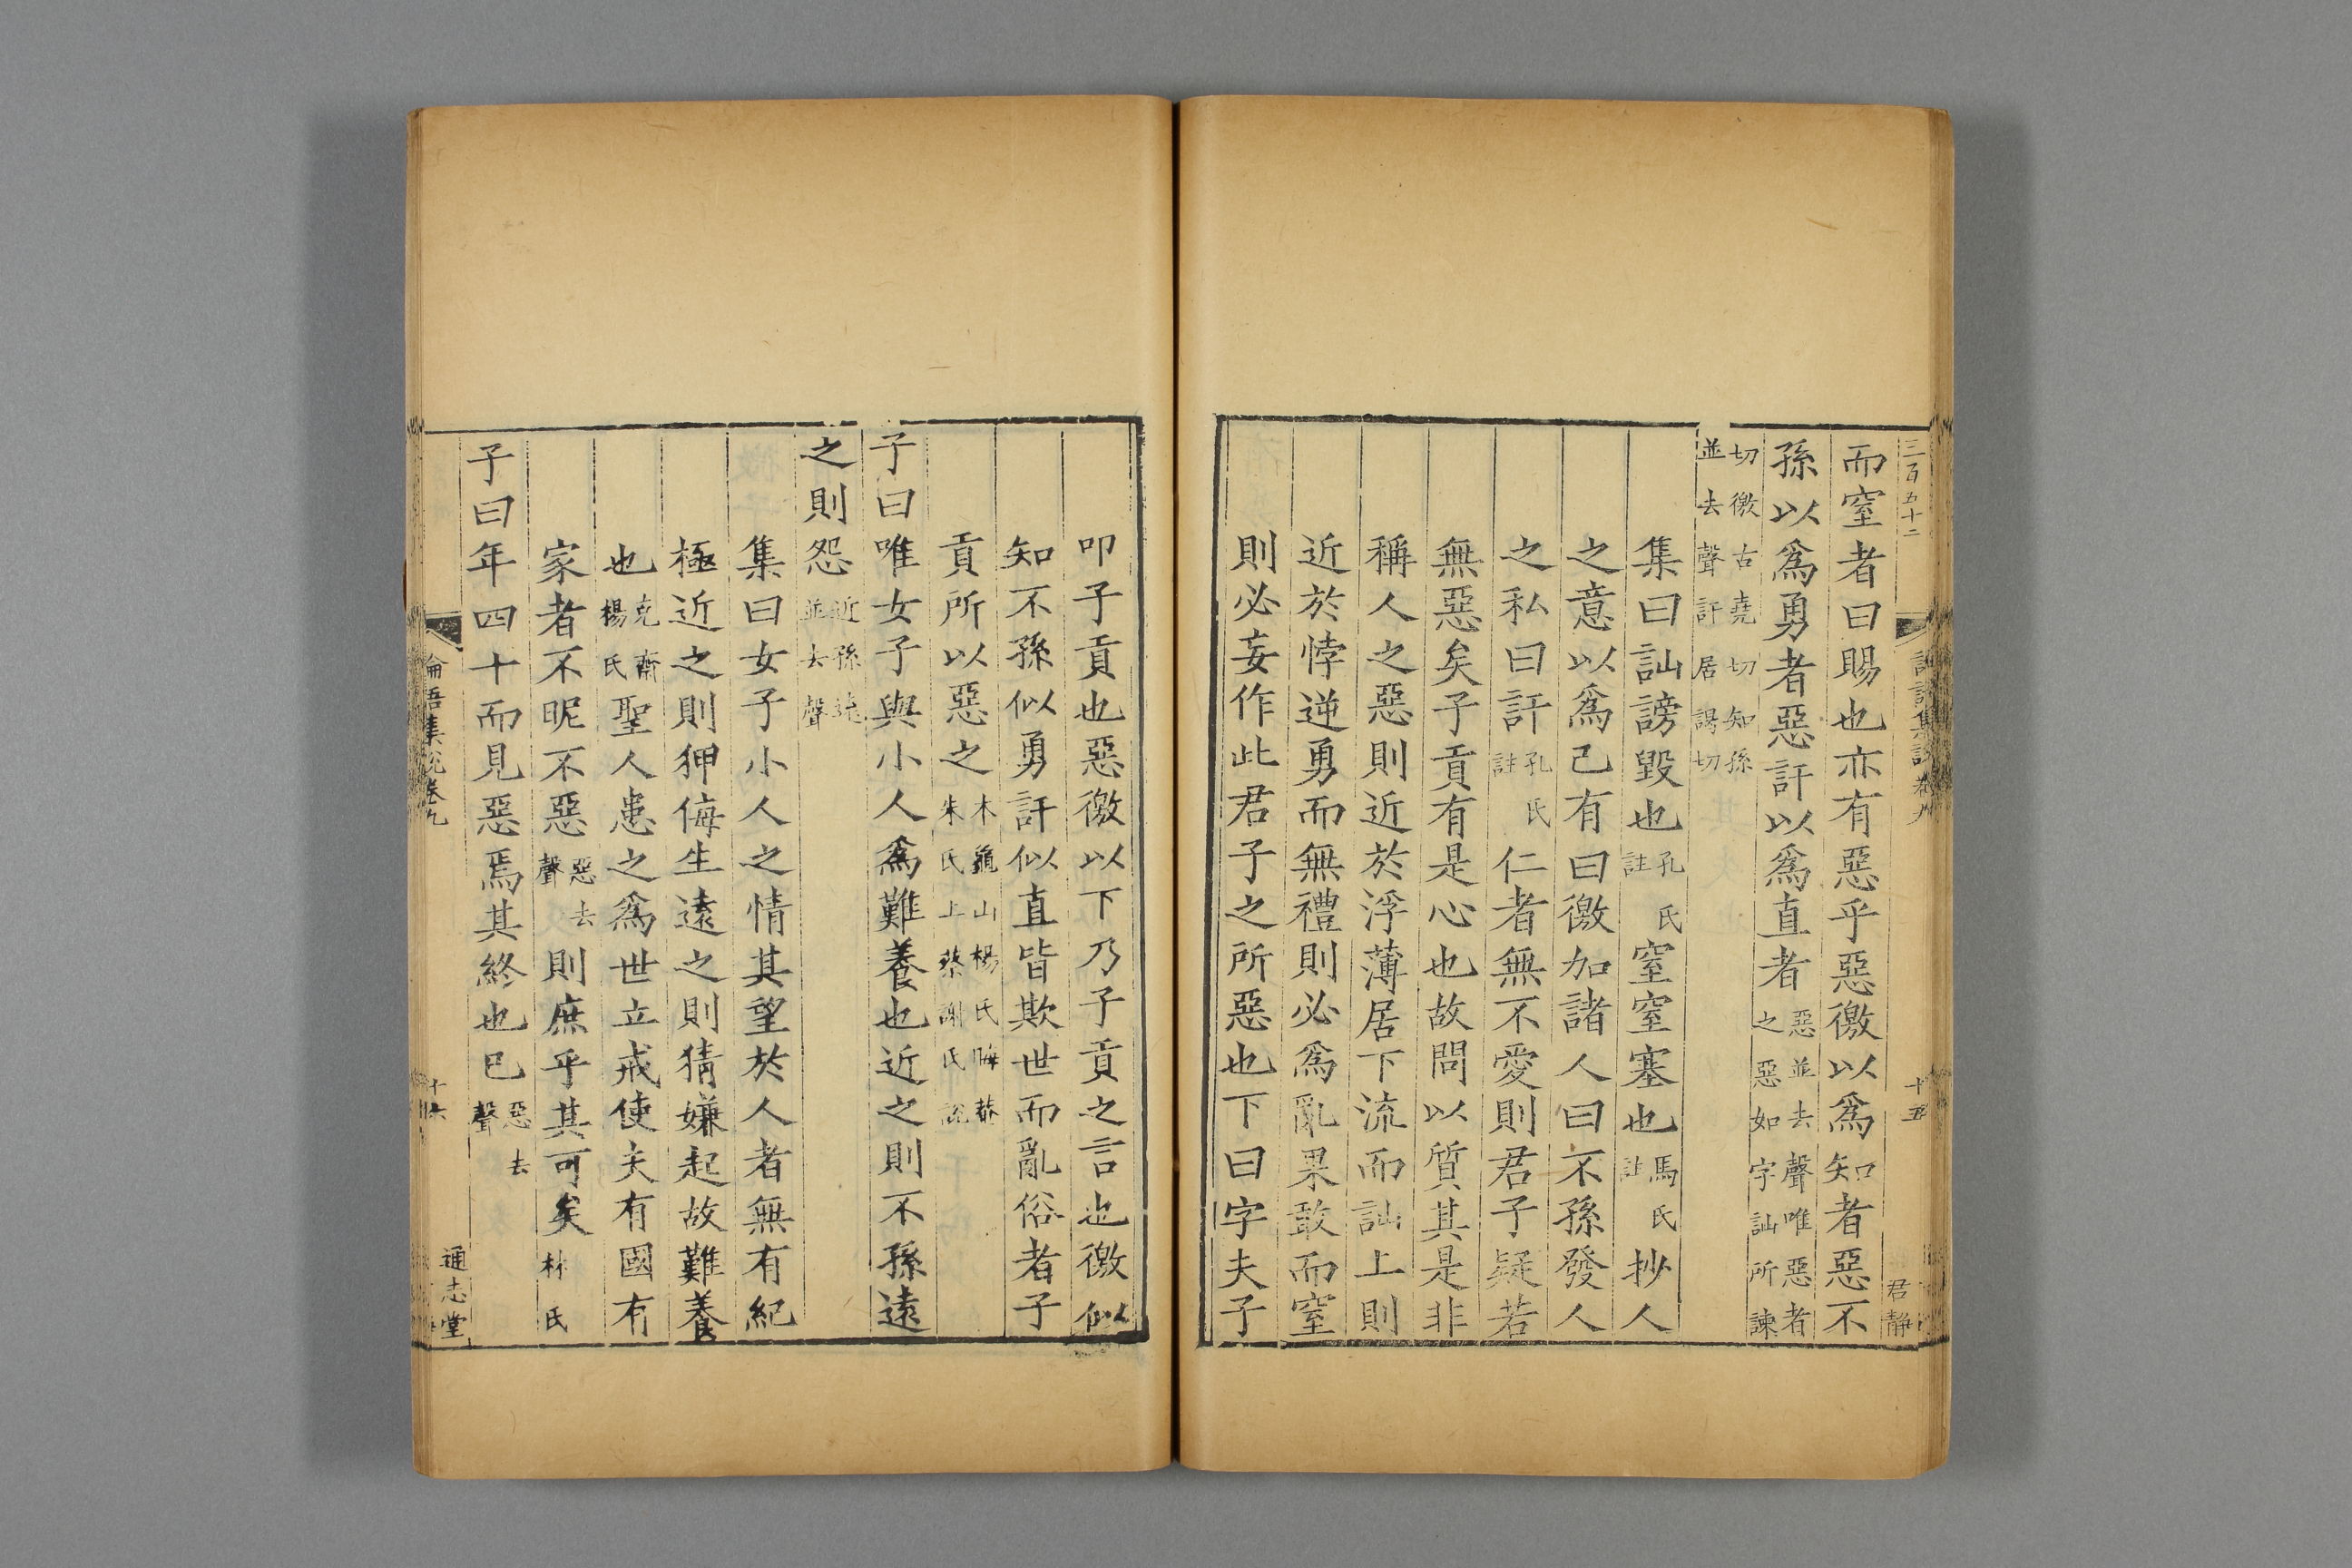 三百五十二
十五
君静
而窒者曰賜也亦有惡乎惡徼以爲知者惡不
孫以爲勇者惡訐以爲直者惡並去聲唯惡者之惡如字訕所諫
切徼古堯切知孫並去聲訐居謁切
集曰訕謗毀也孔氏註窒窒塞也馬氏註抄人
之意以爲己有曰徼加諸人曰不孫發人
之私曰訐孔氏註仁者無不愛則君子疑若
無惡矣子貢有是心也故問以質其是非
稱人之惡則近於浮薄居下流而訕上則
近於悖逆勇而無禮則必爲亂果敢而窒
則必妄作此君子之所惡也下曰字夫子
叩子貢也惡徼以下乃子貢之言也徼似
知不孫似勇訐似直皆欺世而亂俗者子
貢所以惡之本龜山楊氏晦菴朱氏上蔡謝氏說
子曰唯女子與小人爲難養也近之則不孫遠
之則怨近孫遠並去聲
集曰女子小人之情其望於人者無有紀
極近之則狎侮生遠之則猜嫌起故難養
也克齋楊氏聖人患之爲世立戒使夫有國有
家者不昵不惡惡去聲則庶乎其可矣林氏
子曰年四十而見惡焉其終也已惡去聲
論語集說卷九
十六
通志堂